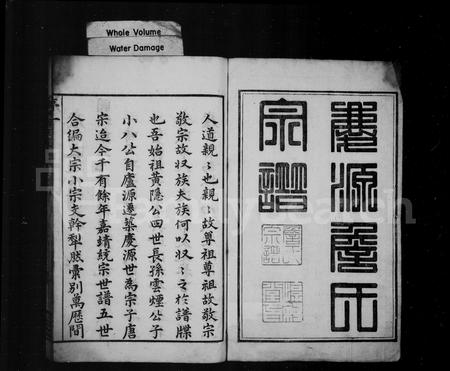 Whole Volume
Water Damage
慶源詹氏
宗譜
人道親〻也親〻故尊祖尊祖故敬宗
敬宗故収族夫族何以収〻之於譜牒
也吾始祖黄隠公四世長孫雲煙公子
小八公自廬源遷築慶源世為宗子唐
宗迨今千有餘年嘉靖統宗世譜五世
合編大宗小宗支幹犁然彙別萬歴間